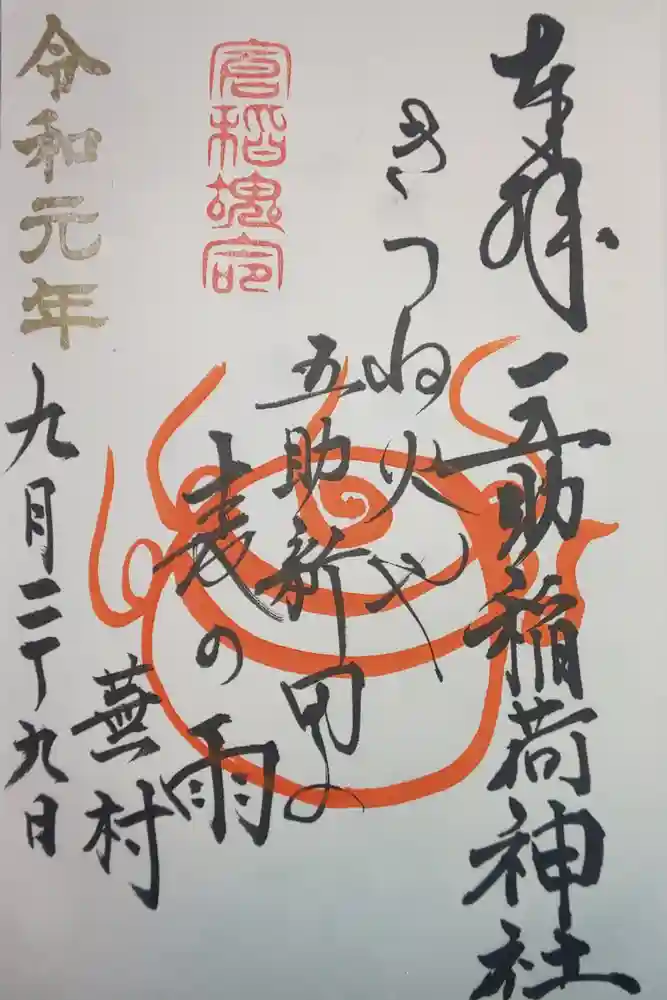 奉拝
五助稲荷神社
きつね火や
五助新田の
麦の雨
蕪村
令和元年
九月二十九日